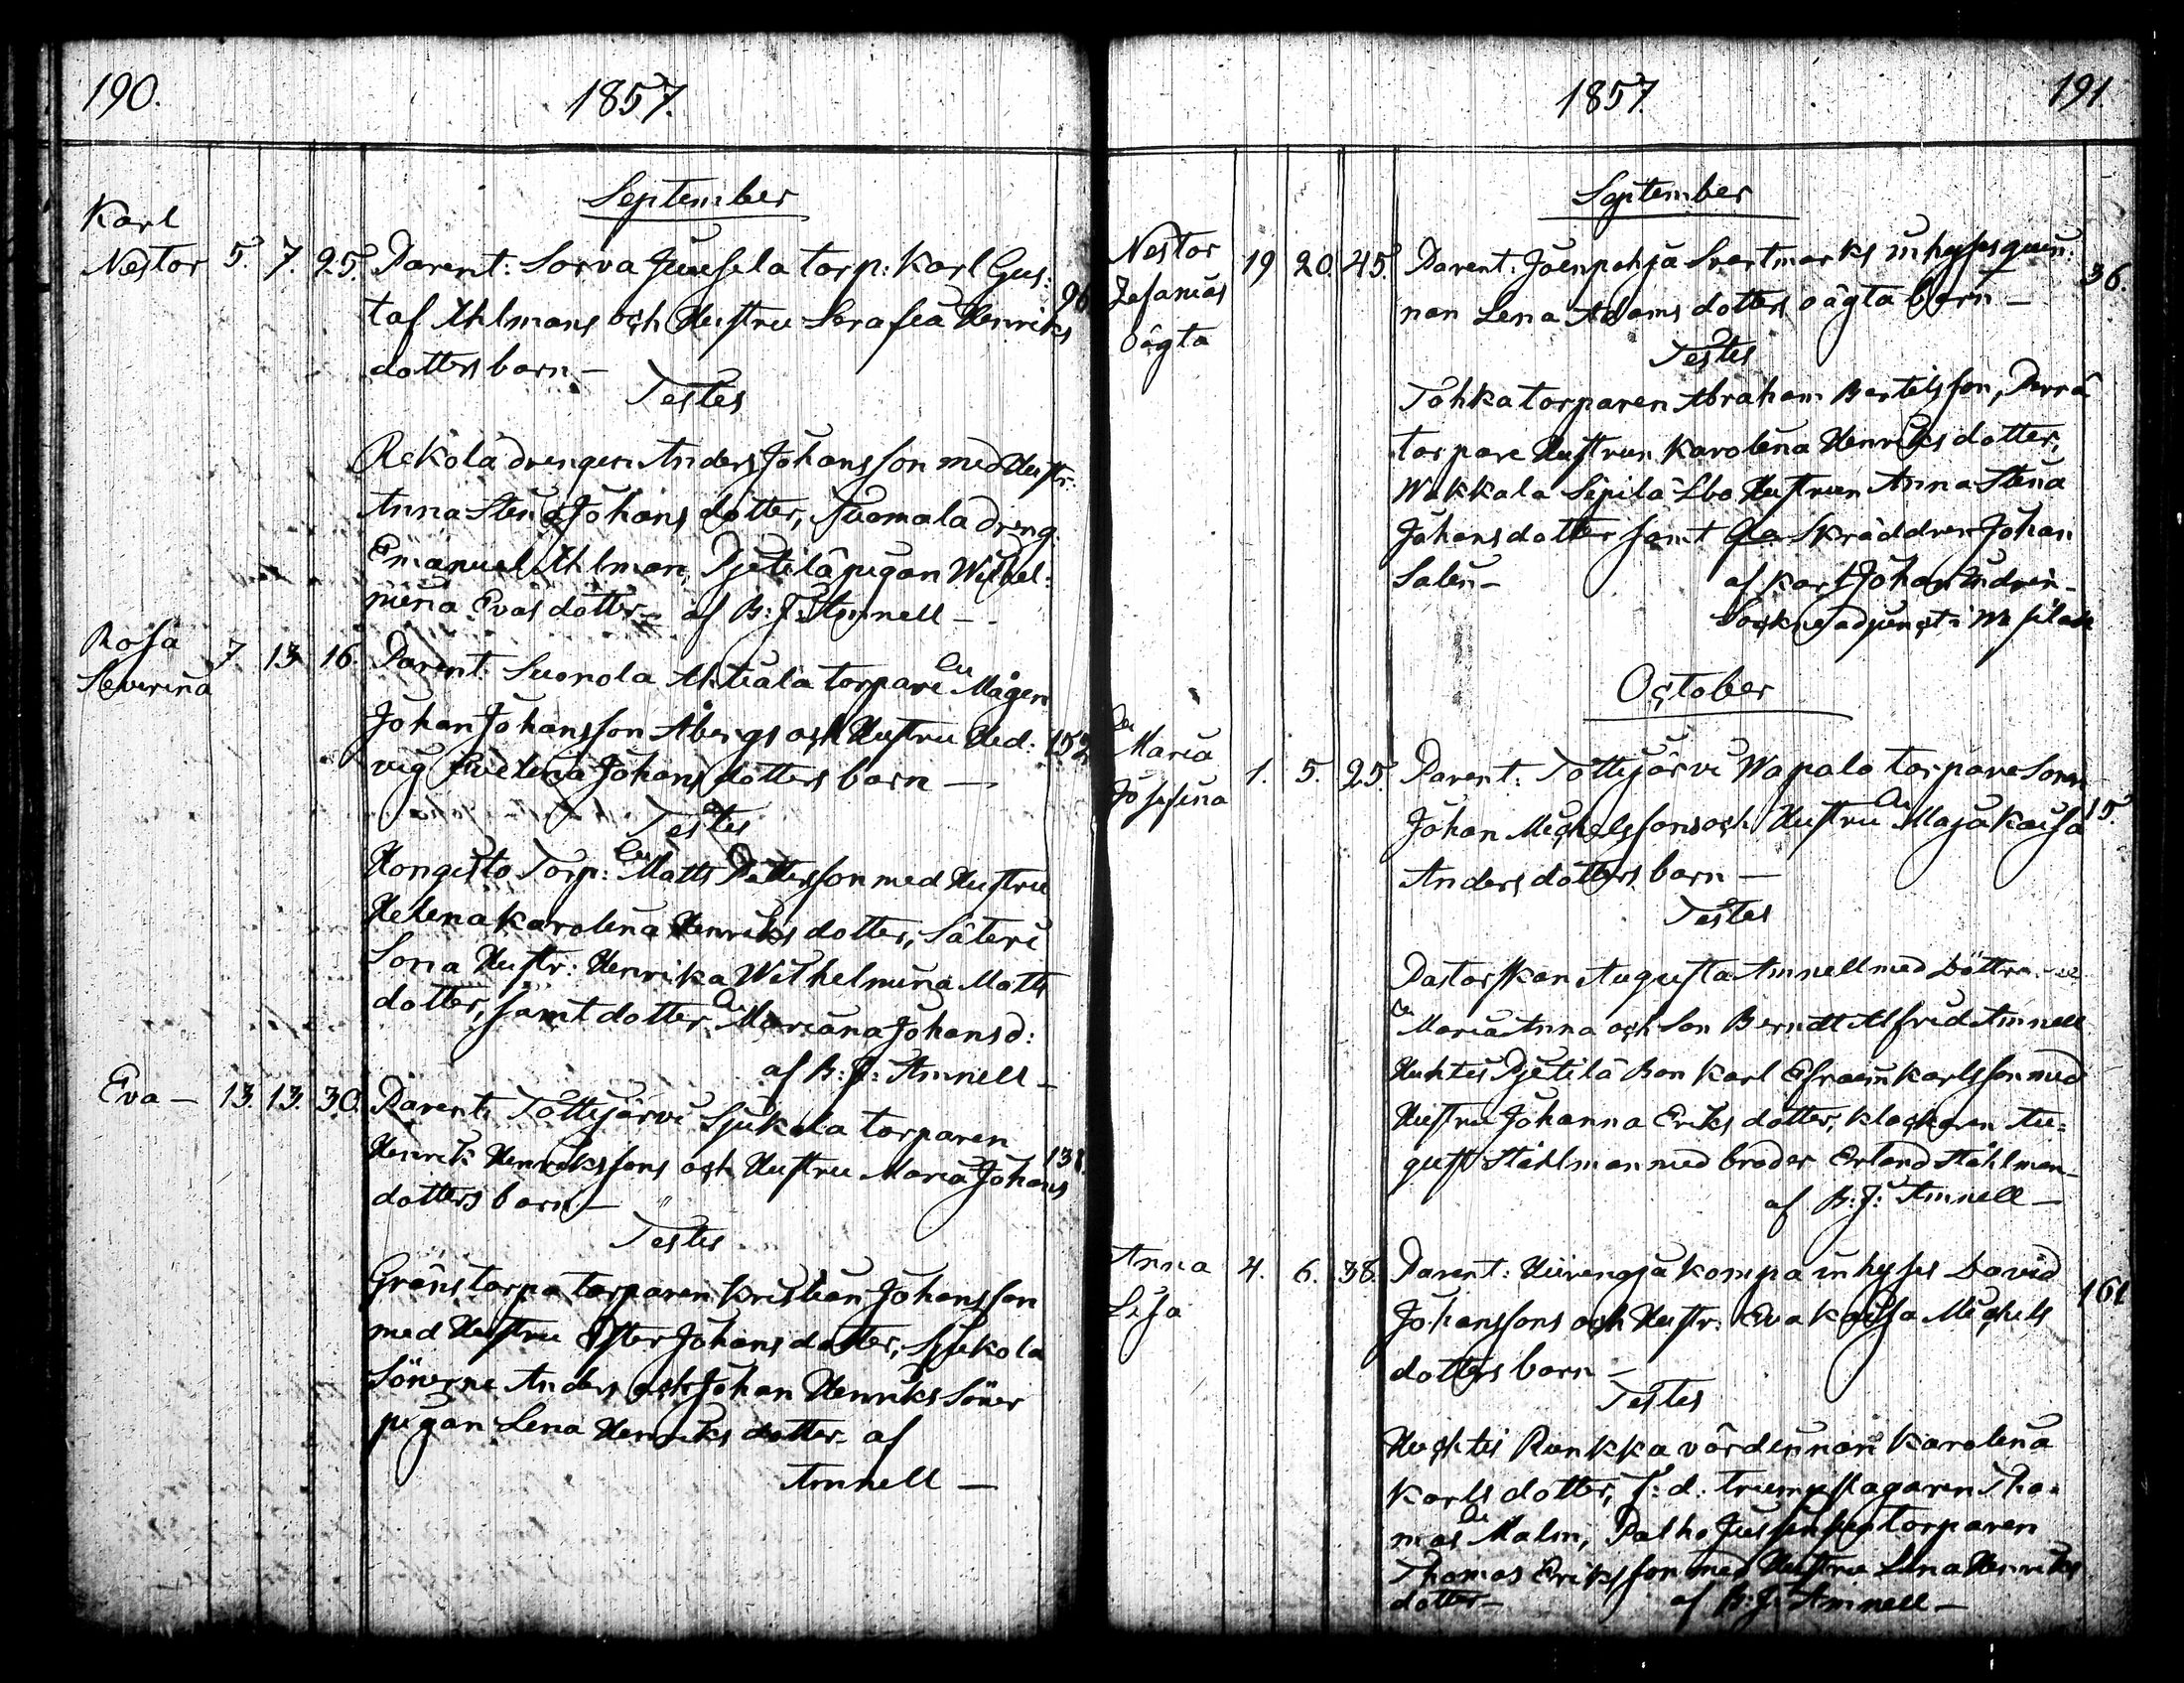 190.
1857.
September
Karl
Nestor 5. 7. 25. Parent: Sorva Juusela torp: Karl Gus:
taf Ahlmans och Hustru Serafia Henriks 96
dotters barn —
Testes
Rekola drengen Anders Johansson med Hustr:
Anna Stina Johans dotter, Suomala dreng
Emanuel Ahlman, Pjetilä pigan Wilhel:
mina Evas dotter — af B: J: Amnell —
Rosa
Severina 7 13 16. Parent: Suonola Ahtiala torpare Mågen
Johan Johansson Åbergs och Hustru Hed: 152
vig Evelina Johans dotters barn —
Testes
Hongisto Torp: Matts Pettersson med Hustru
Helena Karolina Henriks dotter, Säteri
Sona Hustr: Henrika Wilhelmina Matts
dotter, samt dotter Mariana Johansd:
af B: J: Amnell —
Eva — 13. 13. 30. Parent: Tottijärvi Sjukola torparen
Henrik Henrikssons och Hustru Maria Johans 138.
dotters barn —
Testes
Gränstorpa torparen Kristian Johansson
med Hustru Ester Johans dotter, Sjukola
Sönerne Anders och Johan Henriks Söner
pigan Lena Henriks dotter — af
Amnell —
1857
191
September
Nestor
Zefanias 19 20. 45. Parent: Joenpohja Svartmarks inhyses quin:
nan Lena Adams dotters oägta barn — 36.
Oägta
Testes
Tohka torparen Abraham Bertilsson,
torpare Hustrun Karolina Henriks dotter,
Wakkala Sepilä Hustrun Anna Stina
Johans dotter samt Skräddren Johan
Salin — af Karl Johan
Sockne adjunct i Wesilax
October
Maria
Josefina 1. 5. 25. Parent: Tottijärvi Wapalo torpare Sonen
Johan Michelssons och Hustru Maja Kaisa 15.
Anders dotters barn —
Testes
Pastorskan Augusta Amnell med Döttra
Maria Anna och Son Berndt Alfred Amnell
Huhtis Pjetilä Bon Karl Efraim Karlsson med
Hustru Johanna Eriks dotter, klockaren Au=
gust Ståhlman med broder Erland Ståhlman
af B: J: Amnell —
Anna
Lisa 4. 6. 38. Parent: Hiirenoja Kompa inhyses David
Johanssons och Hustr: Eva Kaisa Michels 161
dotters barn —
Testes
Huchtis Runkka värdinnan Karolina
Karls dotter, f: d: trumpslagaren Tho=
mas Malm, Palho torparen
Thomas Eriksson med Hustru Lena Henriks
dotter — af B: J: Amnell —